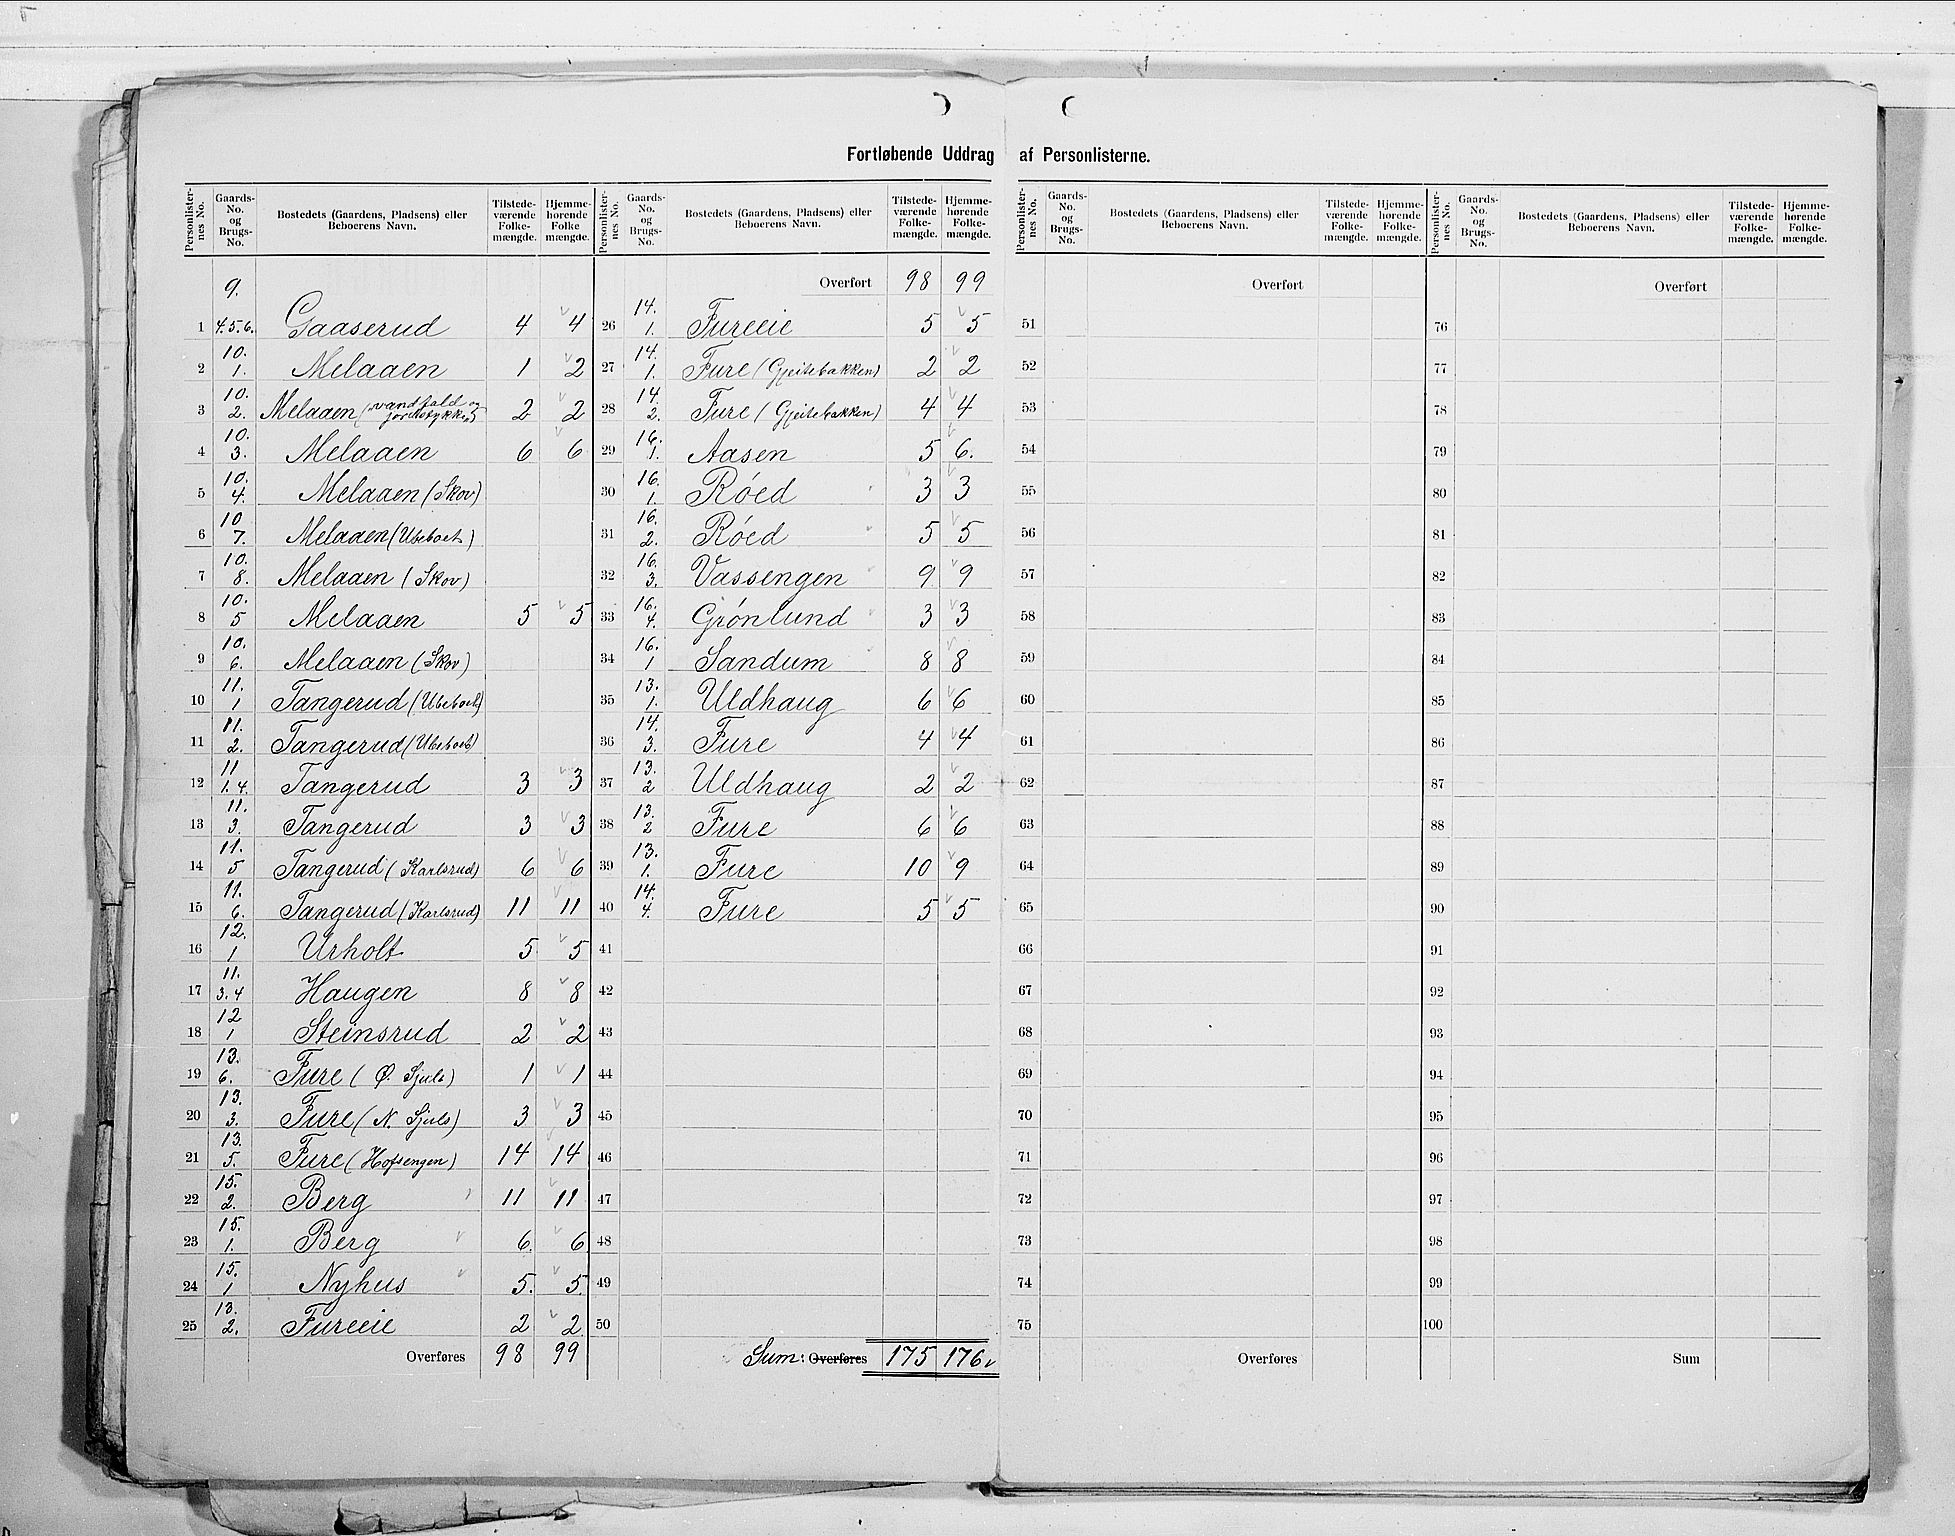 Fortløbende Uddrag af Personlisterne.
Personlister-nes No. | Gaards-No. og Brugs-No. | Bostedets (Gaardens, Pladsens) eller Beboerens Navn. | Tilstede-værende Folke-mængde. | Hjemme-hørende Folke mængde.
1 | 9. 4.5.6. | Gaaserud | 4 | 4
2 | 10. 1. | Melaaen | 1 | 2
3 | 10. 2. | Melaaen (vandfald og jordstykker) | 2 | 2
4 | 10. 3. | Melaaen | 6 | 6
5 | 10. 4. | Melaaen (Skov)
6 | 10 7. | Melaaen (Ubeboet)
7 | 10. 8. | Melaaen (Skov)
8 | 10. 5 | Melaaen | 5 | 5
9 | 10. 6. | Melaaen (Skov)
10 | 11. 1 | Tangerud (Ubeboet)
11 | 11. 2. | Tangerud (Ubeboet)
12 | 11 1.4. | Tangerud | 3 | 3
13 | 11. 3. | Tangerud | 3 | 3
14 | 11. 5 | Tangerud (Karlsrud) | 6 | 6
15 | 11. 6. | Tangerud (Karlsrud) | 11 | 11
16 | 12. 1 | Urholt | 5 | 5
17 | 11. 3.4 | Haugen | 8 | 8
18 | 12 1 | Steinsrud | 2 | 2
19 | 13. 6. | Fure (Ø. Sjuls) | 1 | 1
20 | 13. 3. | Fure (N. Sjuls) | 3 | 3
21 | 13. 5. | Fure (Hofsengen) | 14 | 14
22 | 15. 2. | Berg | 11 | 11
23 | 15. 1. | Berg | 6. | 6
24 | 15. 1 | Nyhus | 5. | 5.
25 | 13. 2. | Fureeie | 2 | 2
Overføres | 98 | 99
Personlister-nes No. | Gaards-No. og Brugs-No. | Bostedets (Gaardens, Pladsens) eller Beboerens Navn. | Tilstede-værende Folke-mængde. | Hjemme-hørende Folke-mængde.
Overført | 98 | 99
26 | 14. 1. | Fureeie | 5 | 5
27 | 14. 1. | Fure (Gjeitebakken) | 2 | 2
28 | 14. 2. | Fure (Gjeitebakken) | 4 | 4
29 | 16. 1. | Aasen | 5 | 6.
30 | 16. 1. | Røed | 3 | 3
31 | 16. 2. | Røed | 5 | 5
32 | 16. 3. | Vassengen | 9 | 9
33 | 16. 4. | Grønlund | 3 | 3
34 | 16. 1 | Sandum | 8 | 8
35 | 13. 1. | Uldhaug | 6 | 6
36 | 14. 3. | Fure | 4 | 4
37 | 13. 2 | Uldhaug | 2 | 2
38 | 13. 2 | Fure | 6 | 6
39 | 13. 1. | Fure | 10 | 9
40 | 14. 4. | Fure | 5 | 5
41
42
43
44
45
46
47
48
49
50
Sum: Overføres | 175 | 176
Personlister-nes No. | Gaards-No. og Brugs-No. | Bostedets (Gaardens, Pladsens) eller Beboerens Navn. | Tilstede-værende Folke-mængde. | Hjemme-hørende Folke-mængde.
Overført
51
52
53
54
55
56
57
58
59
60
61
62
63
64
65
66
67
68
69
70
71
72
73
74
75
Overføres
Personlister-nes No. | Gaards-No. og Brugs-No. | Bostedets (Gaardens, Pladsens) eller Beboerens Navn. | Tilstede-værende Folke-mængde. | Hjemme-hørende Folke-mængde.
Overført
76
77
78
79
80
81
82
83
84
85
86
87
88
89
90
91
92
93
94
95
96
97
98
99
100
Sum